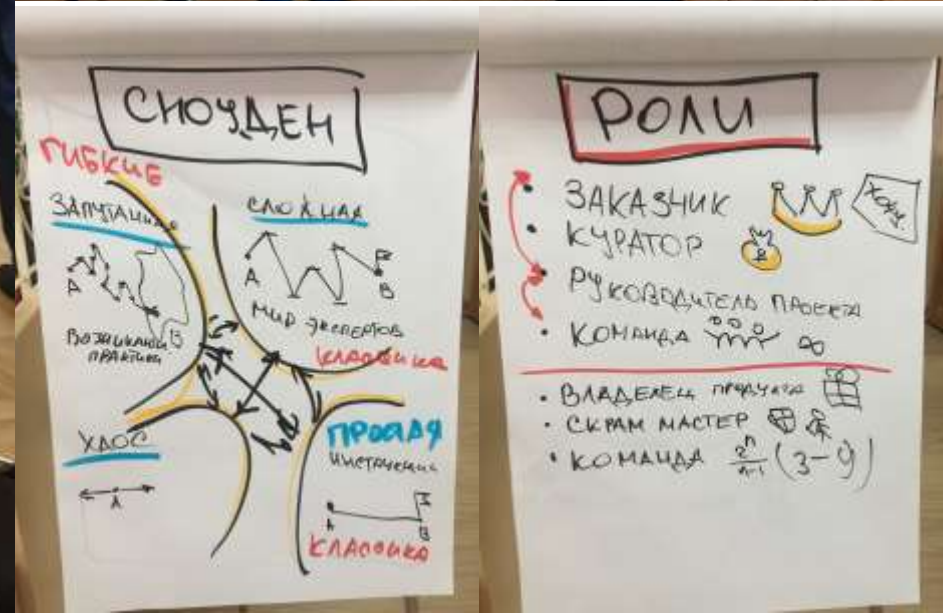 СНОУДЕН
ГИБКИЕ
ЗАПУТАННАЯ
A
B
ВОЗНИКАЮЩ
ПРАКТИКИ
СЛОЖНАЯ
A
B
МИР ЭКСПЕРТОВ
КЛАССИКА
ХАОС
A
ПРОСТАЯ
ИНСТРУКЦИИ
A
B
КЛАССИКА
РОЛИ
• ЗАКАЗЧИК
ХОЧУ
• КУРАТОР
• РУКОВОДИТЕЛЬ ПРОЕКТА
• КОМАНДА
• ВЛАДЕЛЕЦ ПРОДУКТА
• СКРАМ МАСТЕР
• КОМАНДА (3-9)